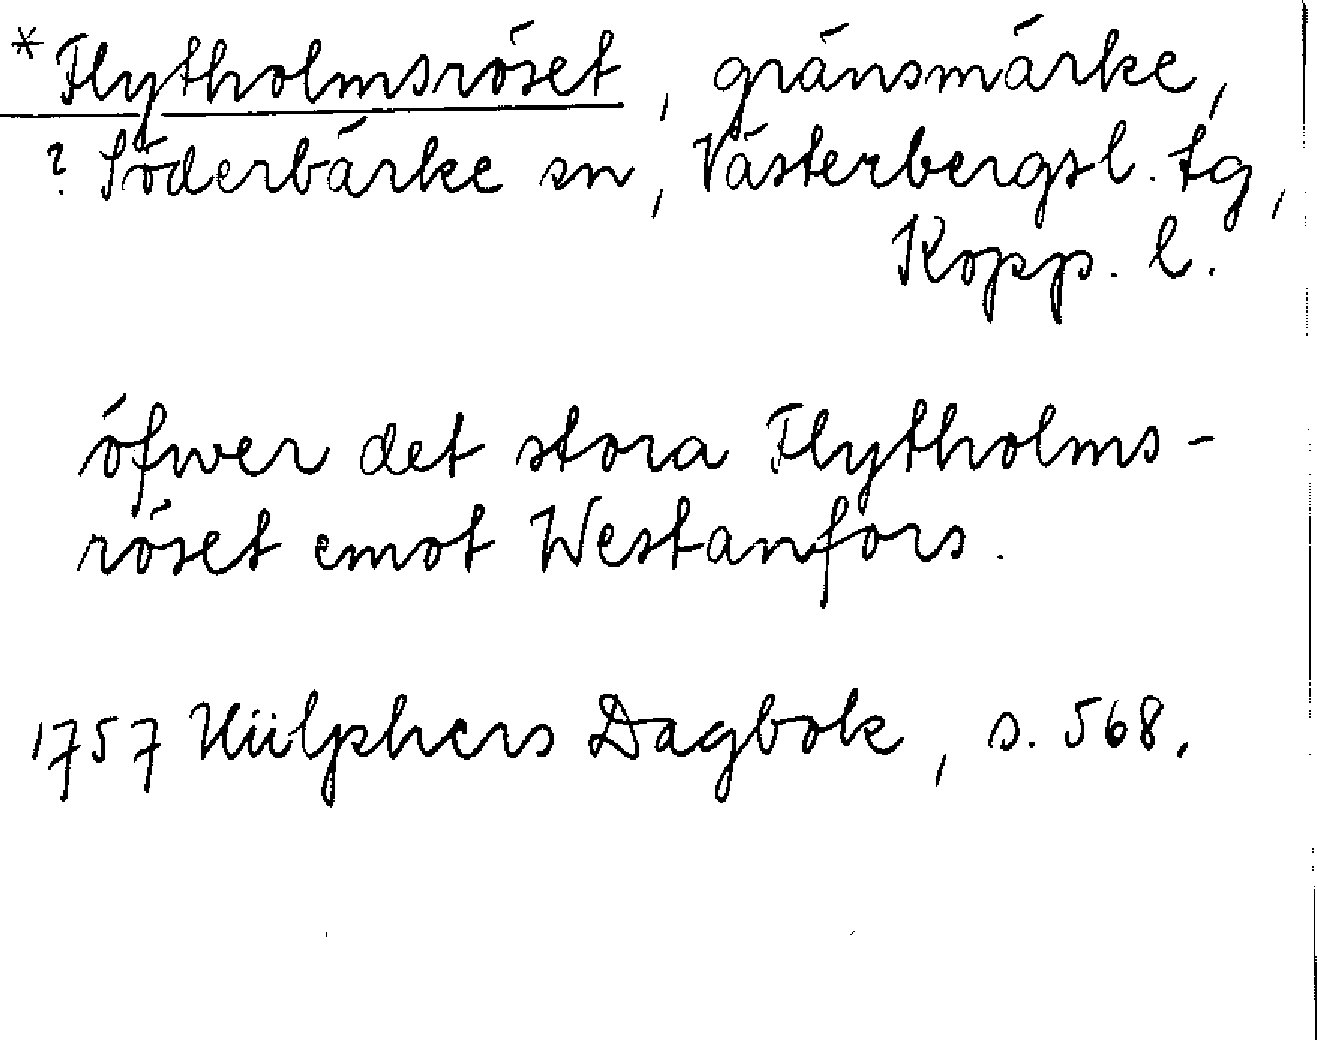 * Flytholmsröset, gränsmärke,
? Söderbärke sn, Västerbergsl. tg,
Kopp. l.
öfwer det stora Flytholms-
röset emot Westanfors.
1757 Hülphers Dagbok, s. 568.